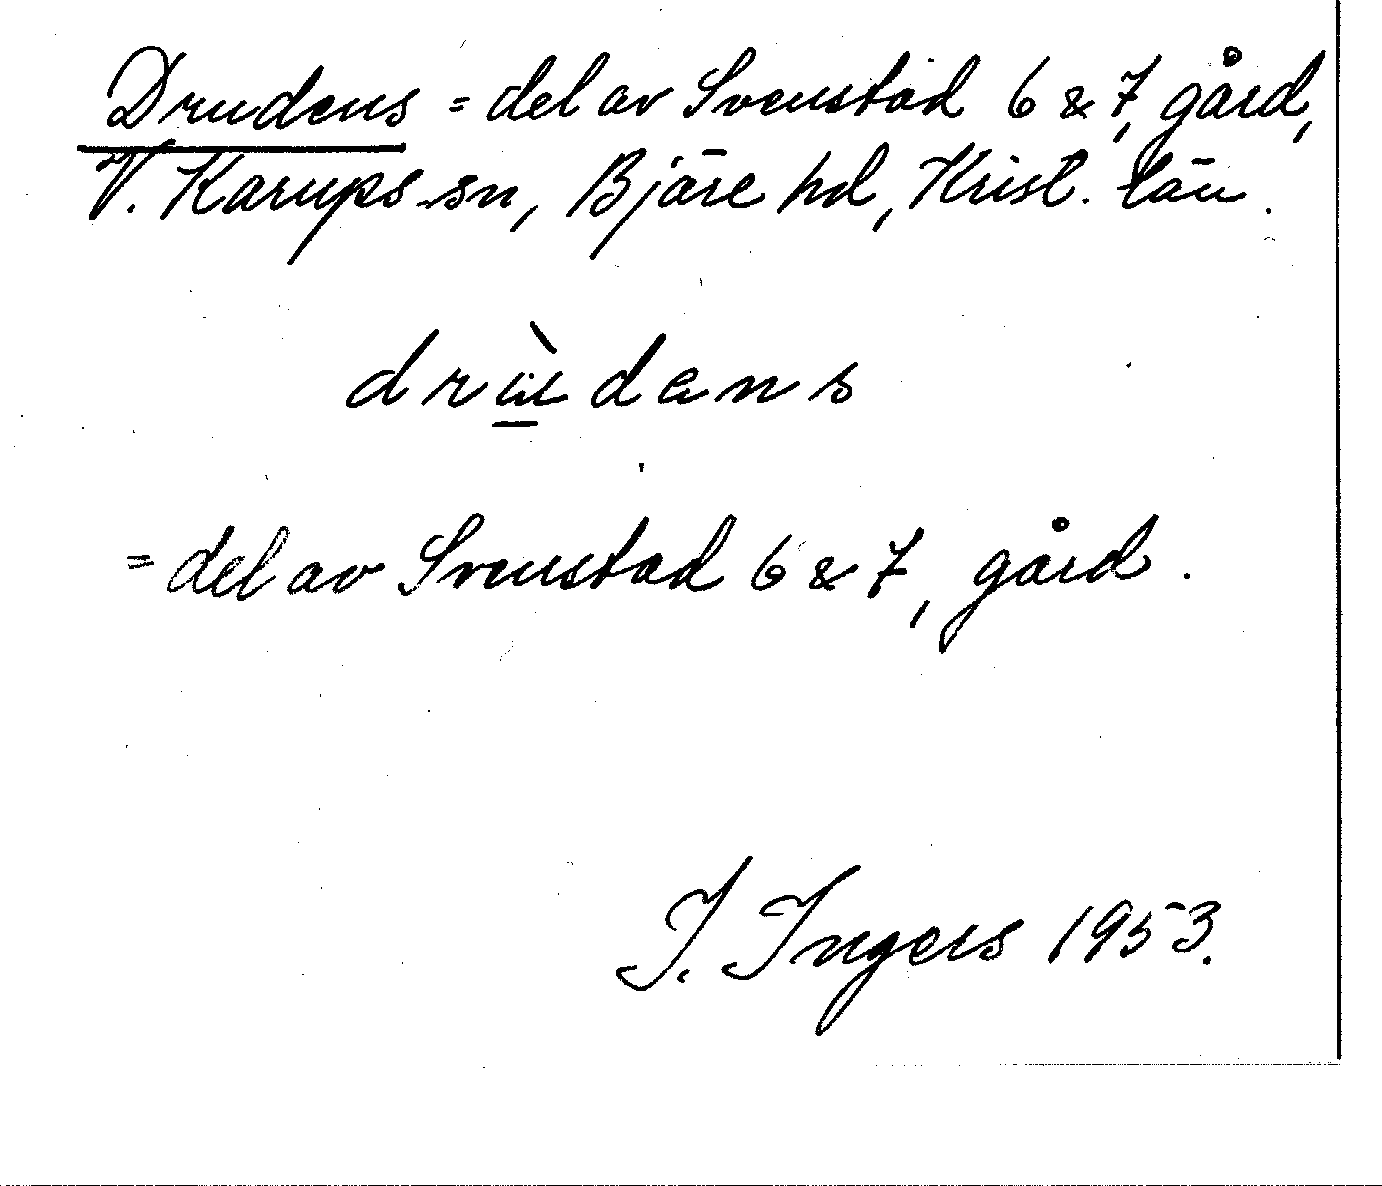 Drudens = del av Svenstad 6 & 7, gård,
V. Karups sn, Bjäre hd, Krist. län.
= del av Svenstad 6 & 7, gård.
I. Ingers 1953.